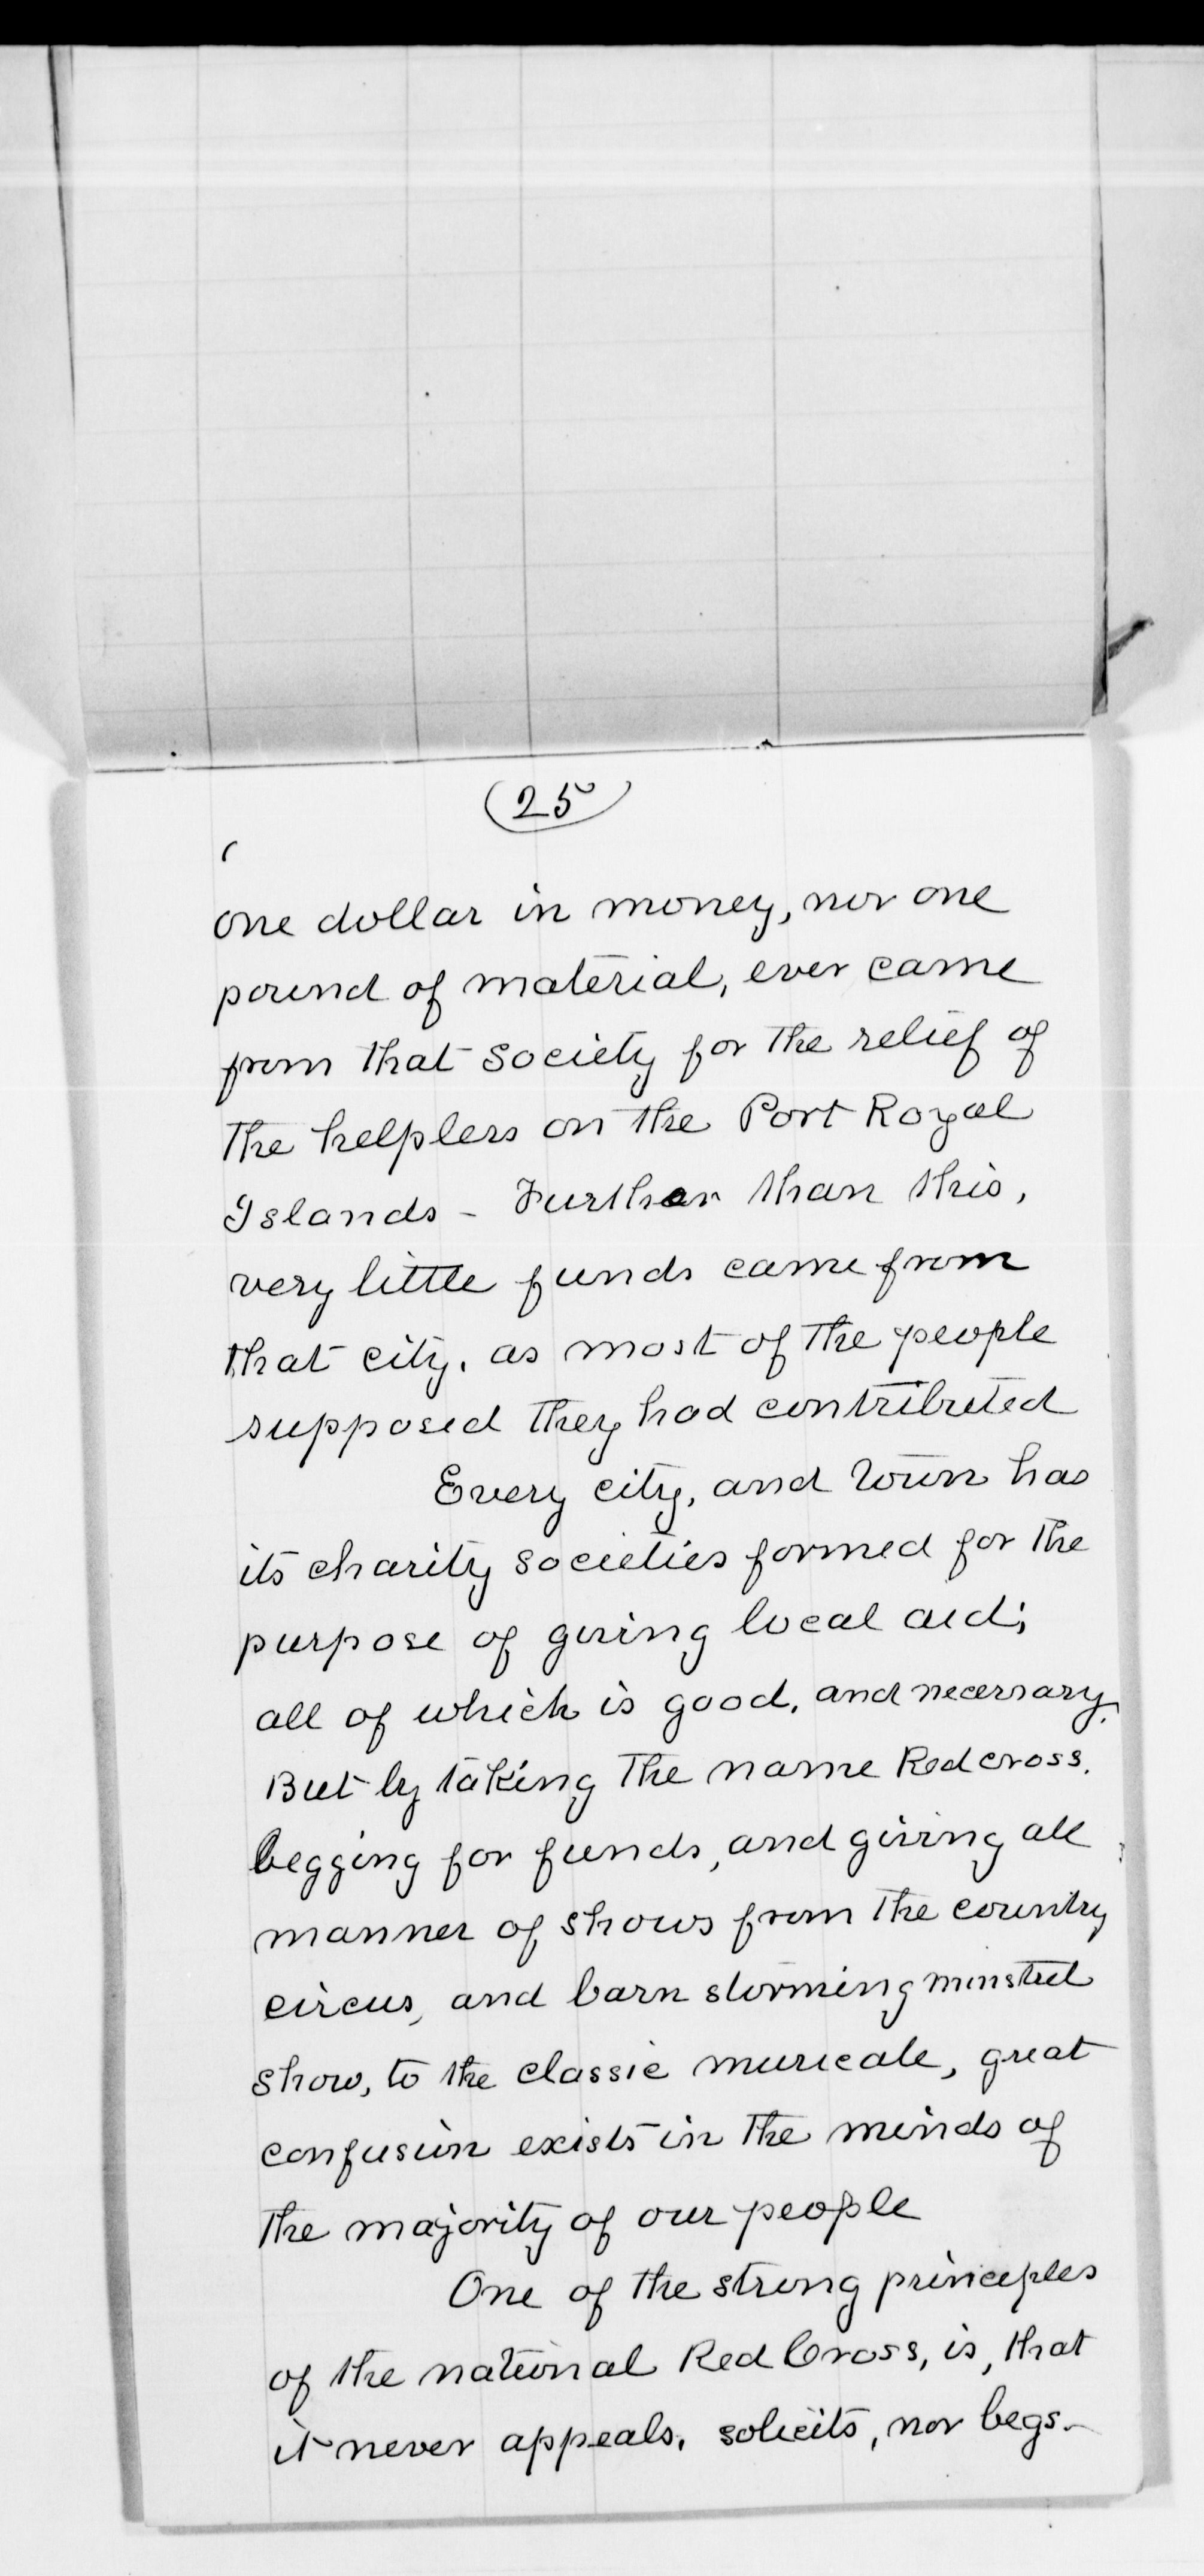 (25)
one dollar in money, nor one
pound of material, ever came
from that society for the relief of
the helpless on the Port Royal
Islands - Further than this,
very little funds came from
that city, as most of the people
supposed they had contributed
Every city, and town has
its charity societies formed for the
purpose of giving local aid;
all of which is good, and necessary.
But by taking the name Red cross,
begging for funds, and giving all
manner of shows from the country
circus, and barn storming minstrel
show, to the classic musicale, great
confusion exists in the minds of
the majority of our people
One of the strong principles
of the national Red Cross, is, that
it never appeals, solicits, nor begs.-